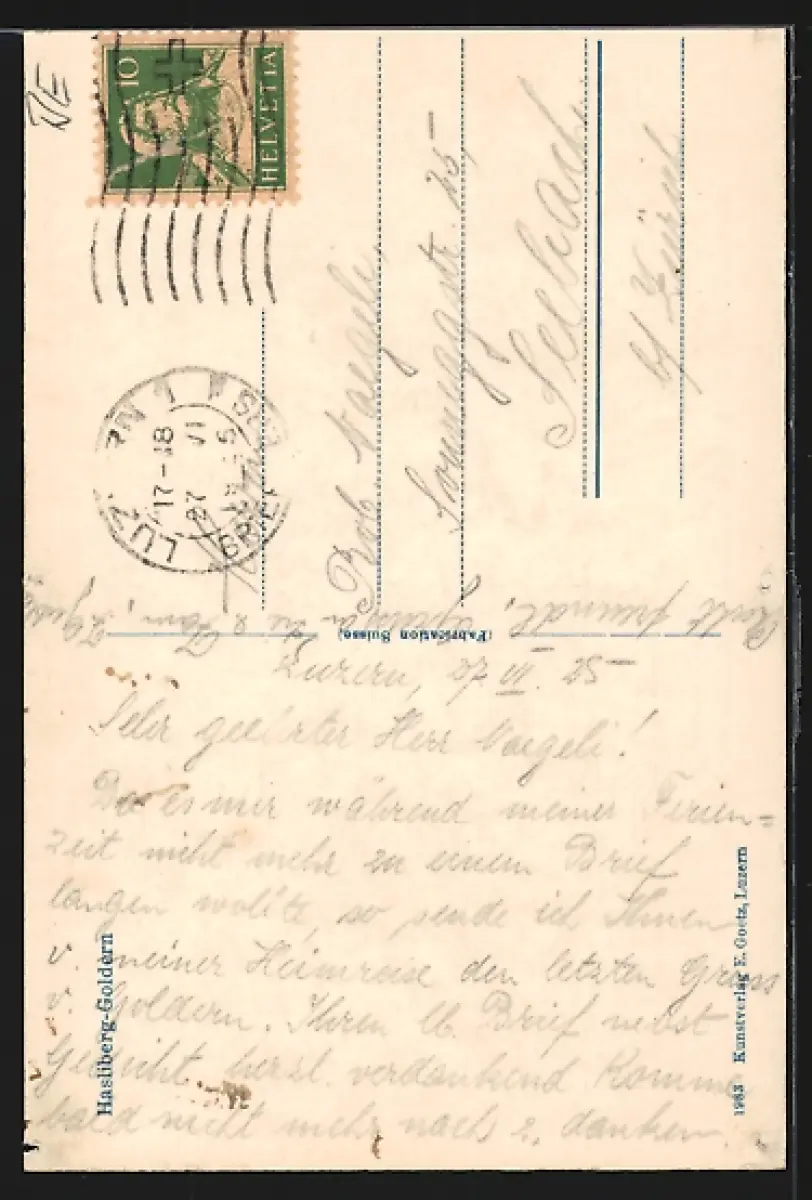 10
HELVETIA
LUZERN 1
17-18
27 VI
25
BRIEF
Rob. Naegeli,
Sonneggstr. 25,
Seebach
b/ Zürich
(Fabrication Suisse)
Luzern, 27. VI. 25
Sehr geehrter Herr Naegeli!
Da es mir während meiner Ferien=
zeit nicht mehr zu einem Brief
langen wollte, so sende ich Ihnen
v. meiner Heimreise den letzten Gruss
v. Goldern. Ihren lb. Brief nebst
Gedicht herzl. verdankend. Komme
bald nicht mehr nach z. danken.
Recht freundl.
Hasliberg-Goldern
1983 Kunstverlag E. Goetz, Luzern